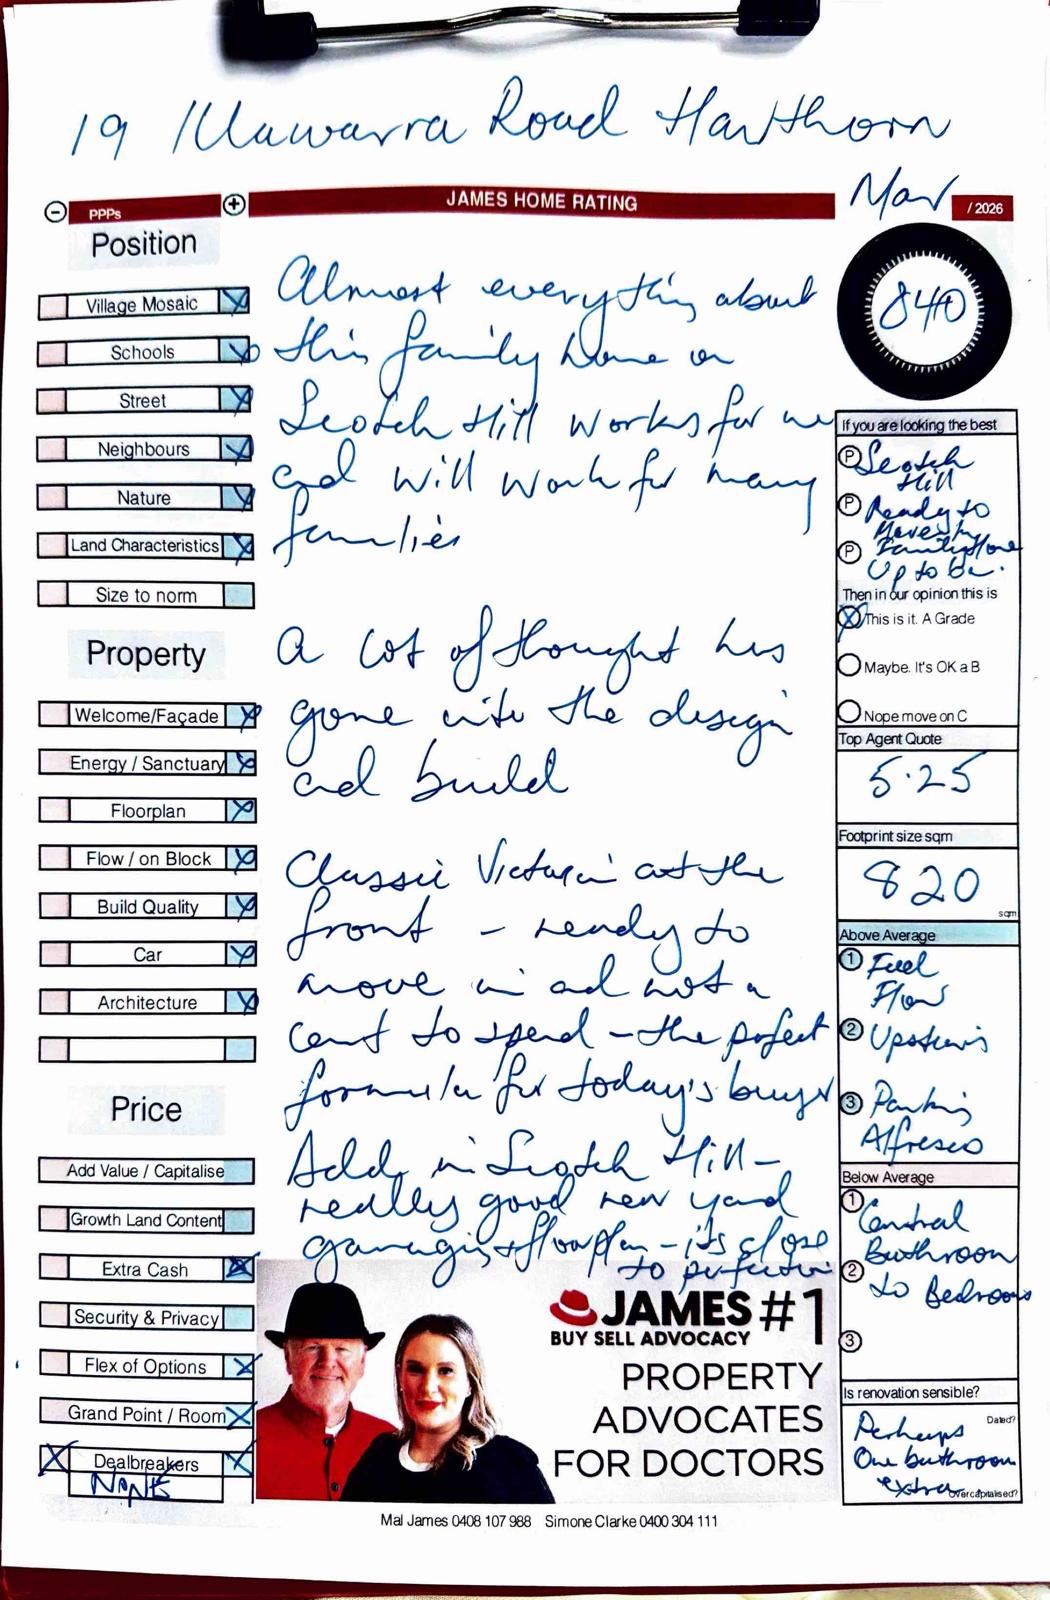 19 Illawarra Road Hawthorn
PPPs
JAMES HOME RATING
Mar / 2026
Position
Village Mosaic
Schools
Street
Neighbours
Nature
Land Characteristics
Size to norm
Property
Welcome/Façade
Energy / Sanctuary
Floorplan
Flow / on Block
Build Quality
Car
Architecture
Price
Add Value / Capitalise
Growth Land Content
Extra Cash
Security & Privacy
Flex of Options
Grand Point / Room
Dealbreakers
None
Almost everything about
this family home on
Scotch Hill works for me
and will work for many
families
A lot of thought has
gone into the design
and build
Classic Victorian at the
front - ready to
move in and not a
cent to spend - the perfect
formula for today's buyer
Add in Scotch Hill -
really good rear yard
garaging & floorplan - its close
to perfection
840
If you are looking the best
P Scotch
Hill
P Ready to
Move in
P Family Home
Up to be.
Then in our opinion this is
This is it. A Grade
Maybe. It's OK a B
Nope move on C
Top Agent Quote
5.25
Footprint size sqm
820
sqm
Above Average
1 Feel
Flow
2 Upstairs
3 Parking
Alfresco
Below Average
1 Central
Bathroom
2 to Bedrooms
3
Is renovation sensible?
Dated?
Perhaps
One bathroom
extra
Overcapitalised?
JAMES #1
BUY SELL ADVOCACY
PROPERTY
ADVOCATES
FOR DOCTORS
Mal James 0408 107 988 Simone Clarke 0400 304 111